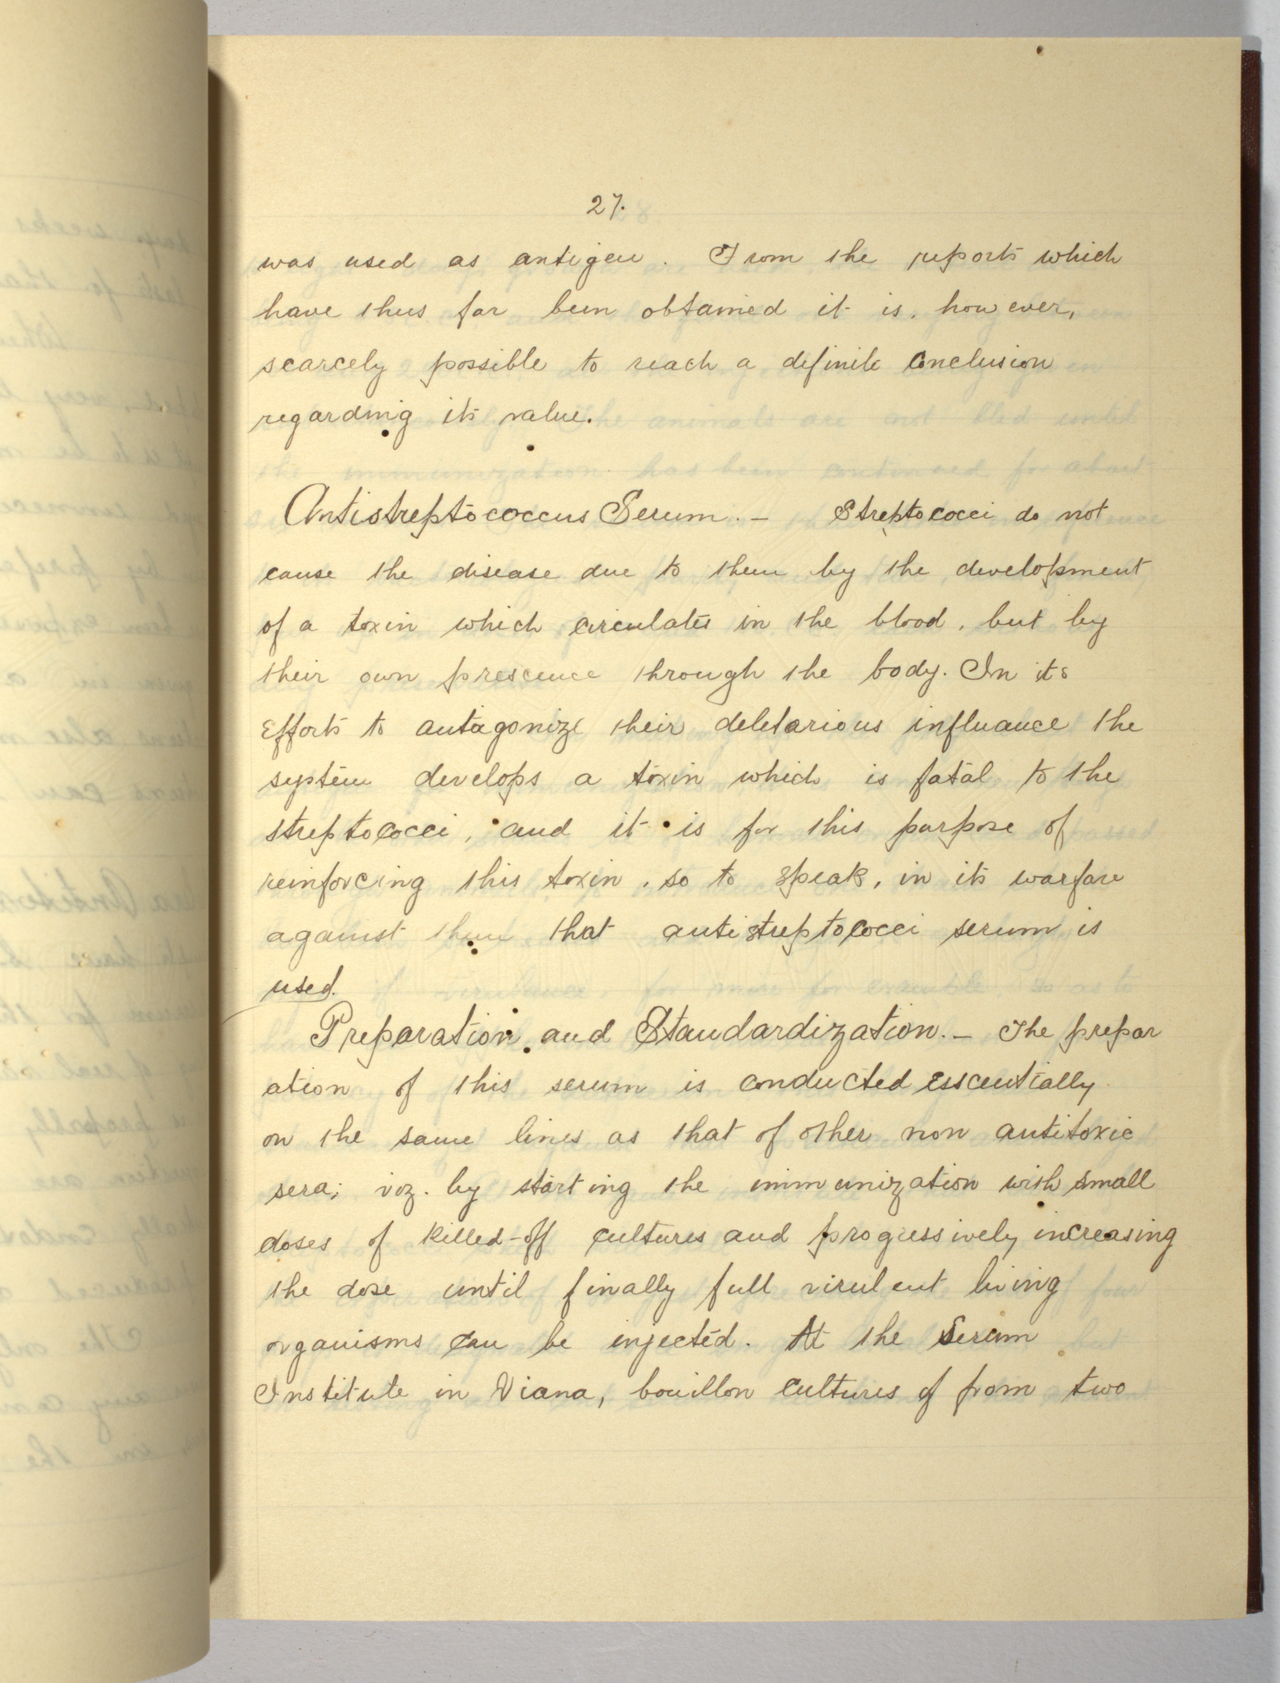 27.
was used as antigen. From the reports which
have thus far been obtained it is, however,
scarcely possible to reach a definite conclusion
regarding its value.
Antistreptococcus Serum. — Streptococci do not
cause the disease due to them by the development
of a toxin which circulates in the blood, but by
their own prescence through the body. In its
efforts to antagonize their deletarious influance the
system develops a toxin which is fatal to the
streptococci, and it is for this purpose of
reinforcing this toxin, so to speak, in its warfare
against them that antistreptococci serum is
used.
Preparation and Standardization. — The prepar
ation of this serum is conducted esscentially
on the same lines as that of other non antitoxic
sera; viz. by starting the immunization with small
doses of killed-off cultures and progressively increasing
the dose until finally full virulent living
organisms can be injected. At the Serum
Institute in Viana, bouillon cultures of from two